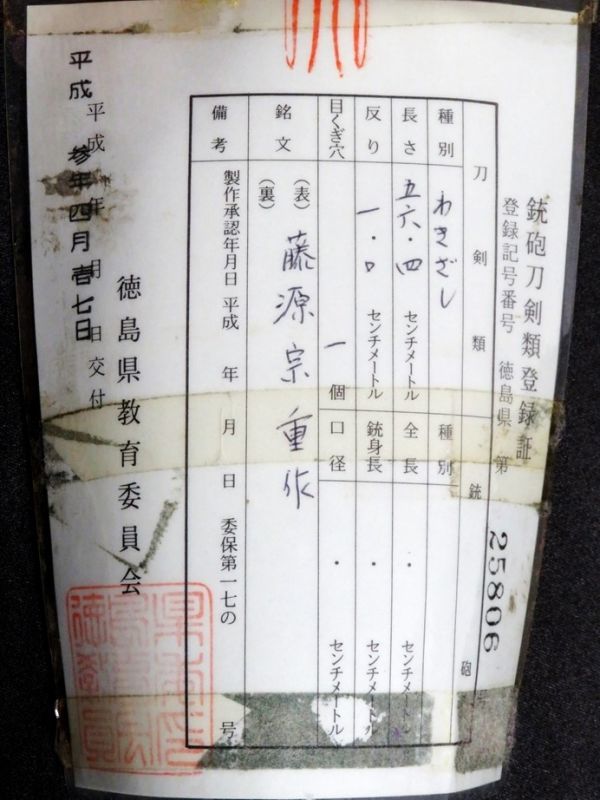 銃砲刀剣類登録証
登録記号番号 徳島県 第 25806 号
刀剣類
種別 わきざし
長さ 五六・四 センチメートル
反り 一・〇 センチメートル
目くぎ穴 一個
銃砲
種別
全長 ・ センチメートル
銃身長 ・ センチメートル
口径 ・ センチメートル
銘文 (表) 藤源宗重作
(裏)
備考 製作承認年月日 平成 年 月 日 委保第一七の 号
平成 年 月 日交付
平成 参年四月 七日
徳島県教育委員会